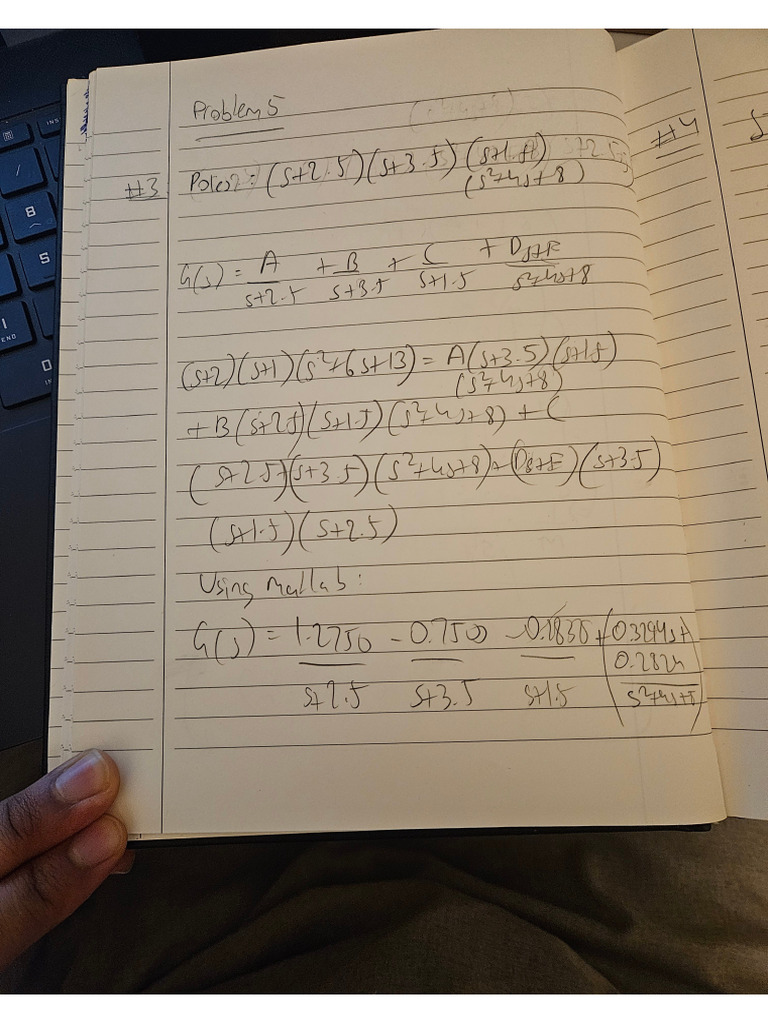 Problem 5
#4
#3 Poles: (s+2.5)(s+3.5)(s+1.5)
(s²+4s+8)
G(s) = A/s+2.5 + B/s+3.5 + C/s+1.5 + Ds+E/s²+4s+8
(s+2)(s+1)(s²+6s+13) = A(s+3.5)(s+1.5)
(s²+4s+8)
+ B(s+2.5)(s+1.5)(s²+4s+8) + C
(s+2.5)(s+3.5)(s²+4s+8)+(Ds+E)(s+3.5)
(s+1.5)(s+2.5)
Using Matlab:
G(s) = 1.2750/s+2.5 - 0.7500/s+3.5 (0.3294s+
0.2824